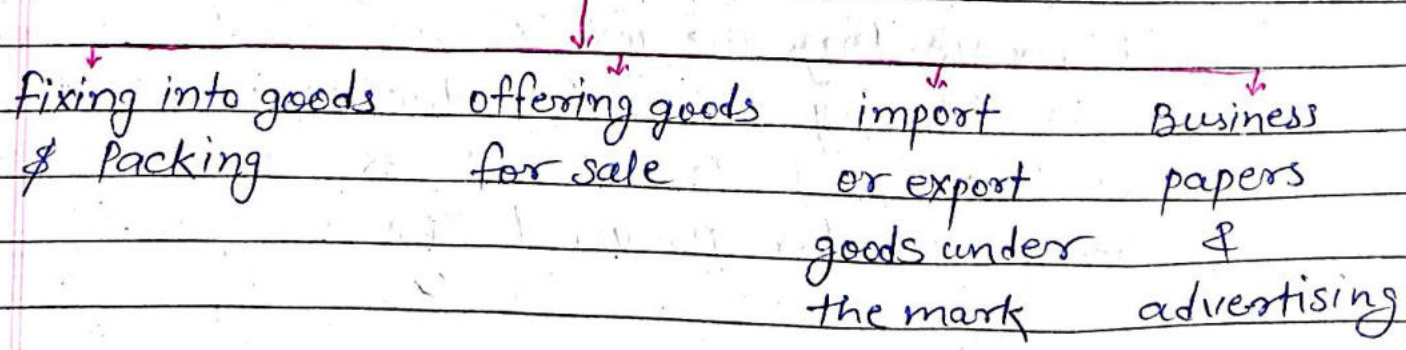 Fixing into goods
& Packing
offering goods
for sale
import
or export
goods under
the mark
Business
papers
&
advertising